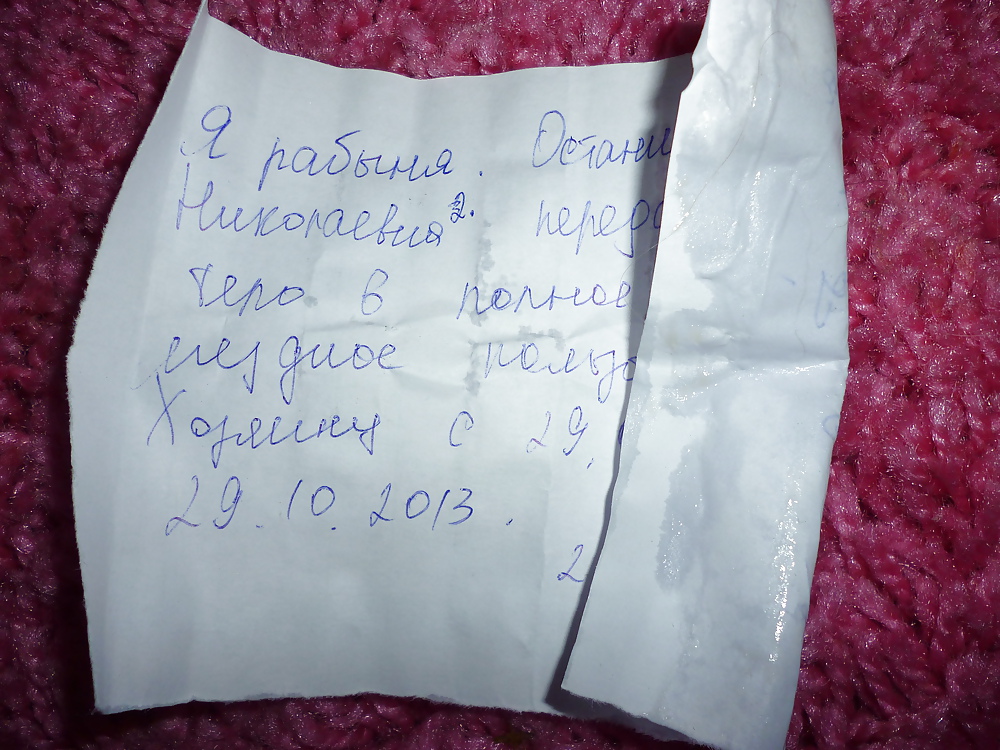 Я рабыня. Остани
Николаевна 2. переда
тело в полное
мездное пользо
Хозяину с 29.
29.10.2013.
2